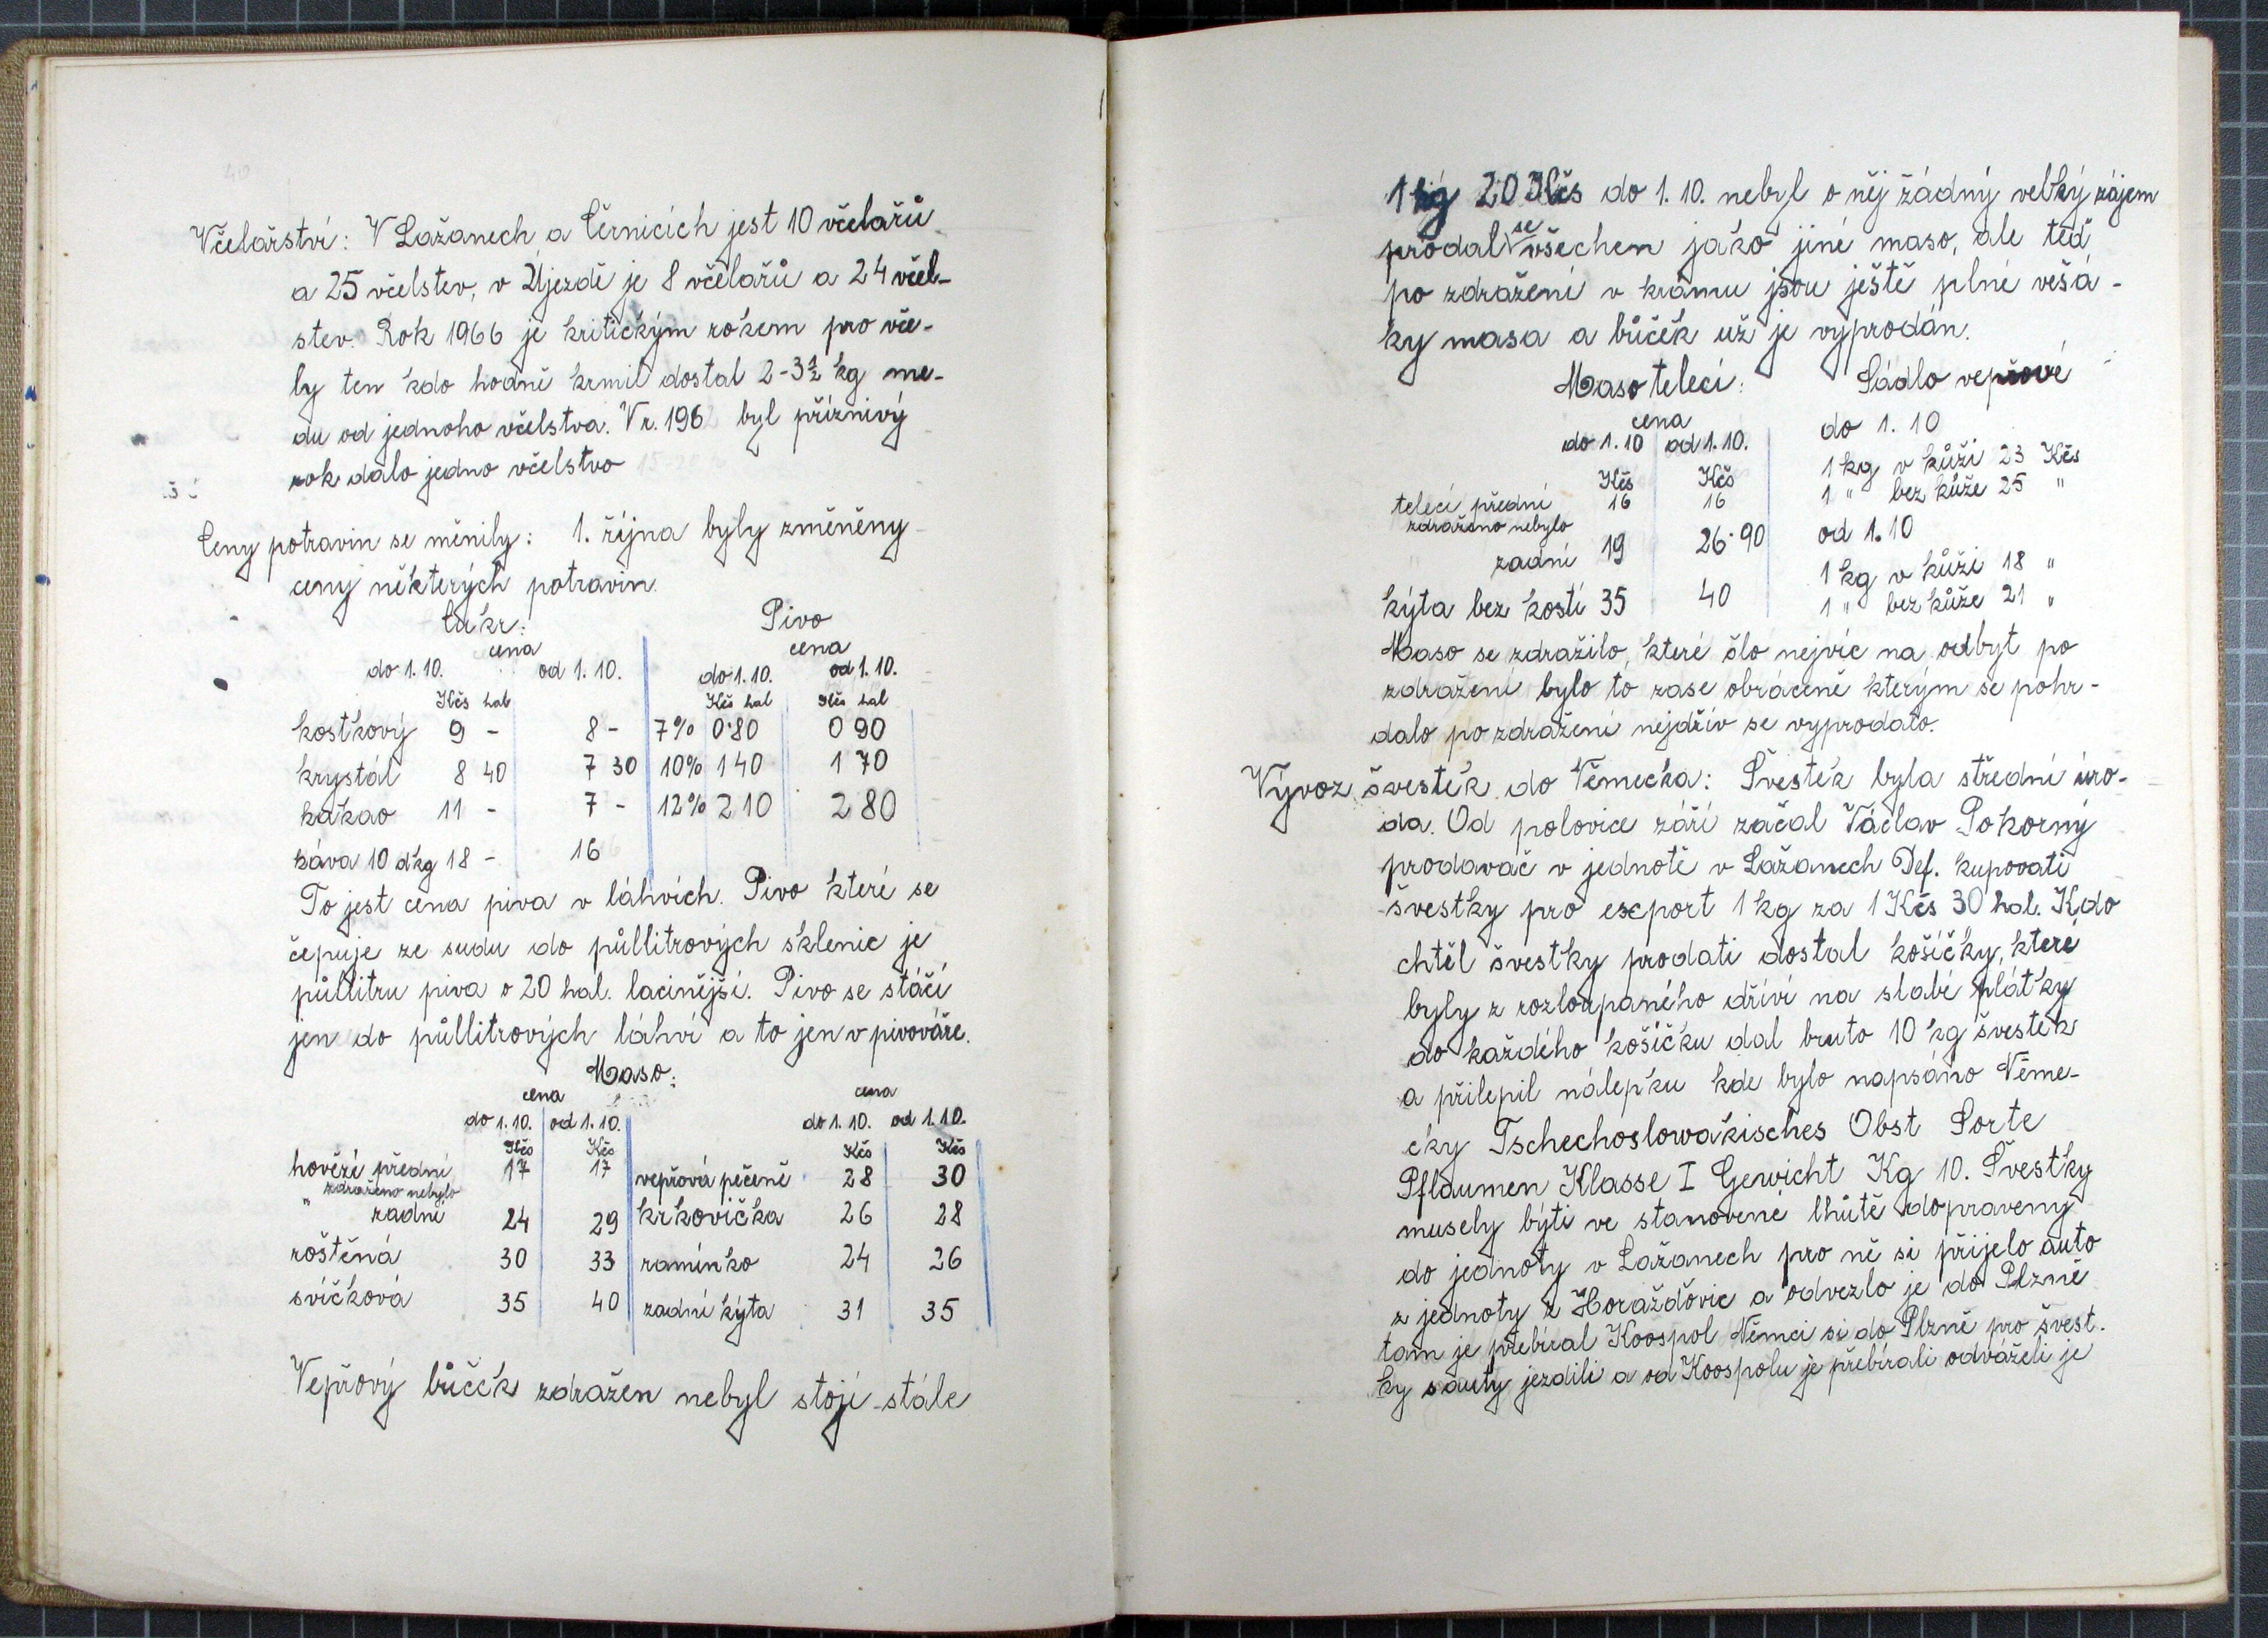 Včelařství: V Lažanech a Černicích jest 10 včelařů
a 25 včelstev, v Újezdě je 8 včelařů a 24 včel-
stev. Rok 1966 je kritickým rokem pro vče-
ly ten kdo hodně krmil dostal 2-3½ kg me-
du od jednoho včelstva. V r. 1962 byl příznivý
rok dalo jedno včelstvo
Ceny potravin se měnily: 1. října byly změněny
ceny některých potravin.
Cukr: Pivo
cena cena
do 1.10. od 1.10. do 1.10. od 1.10.
Kčs hal Kčs hal Kčs hal
kostkový 9 - 8 - 7% 0·80 0 90
krystál 8 40 7 30 10% 1 40 1 70
kakao 11 - 7 - 12% 2 10 2 80
káva 10 dkg 18 - 16
To jest cena piva v láhvích. Pivo které se
čepuje ze sudu do půllitrových sklenic je
půllitru piva o 20 hal. lacinější. Pivo se stáčí
jen do půllitrových láhví a to jen v pivováře.
Maso:
cena cena
do 1.10. od 1.10. do 1.10. od 1.10.
Kčs Kčs Kčs Kčs
hovězí přední 17 17 vepřová pečeně 28 30
zdraženo nebylo
" zadní 24 29 krkovička 26 28
roštěná 30 33 ramínko 24 26
svíčková 35 40 zadní kýta 31 35
Vepřový bůček zdražen nebyl stojí stále
1 kg 20 Kčs do 1.10. nebyl o něj žádný velký zájem
prodal se všechen jako jiné maso, ale teď
po zdražení v krámu jsou ještě plné věšá-
ky masa a bůček už je vyprodán.
Maso telecí: Sádlo vepřové
cena
do 1.10 od 1.10. do 1.10
Kčs Kčs 1 kg v kůži 23 Kčs
telecí přední 16 16 1 " bez kůže 25 "
zdraženo nebylo
zadní 19 26·90 od 1.10
1 kg v kůži 18 "
kýta bez kostí 35 40 1 " bez kůže 21 "
Maso se zdražilo, které šlo nejvíc na odbyt po
zdražení bylo to zase obráceně kterým se pohr-
dalo po zdražení nejdřív se vyprodalo.
Vývoz švestek do Německa: Švestek byla střední úro-
da. Od polovice září začal Václav Pokorný
prodavač v jednotě v Lažanech Def. kupovati
švestky pro export 1 kg za 1 Kčs 30 hal. Kdo
chtěl švestky prodati dostal košíčky, které
byly z rozloupaného dříví na slabé plátky
do každého košíčku dal bruto 10 kg švestek
a přilepil nálepku kde bylo napsáno Něme-
cky Tschechoslowakisches Obst Sorte
Pflaumen Klasse I Gewicht Kg 10. Švestky
musely býti ve stanovené lhůtě dopraveny
do jednoty v Lažanech pro ně si přijelo auto
z jednoty z Horažďovic a odvezlo je do Plzně
tam je přebíral Koospol Němci si do Plzně pro švest.
ky s auty jezdili a od Koospolu je přebírali odváželi je